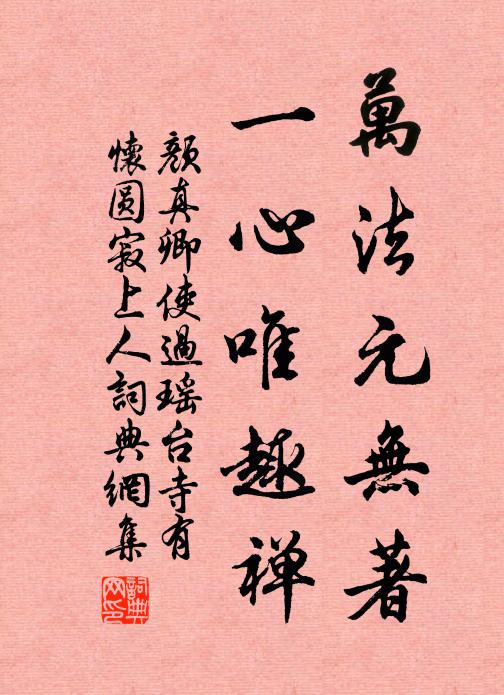 萬法元無著
一心唯趣禅
顔真卿使過瑶台寺有
懷圆寂上人詞典網集
詞典
网印